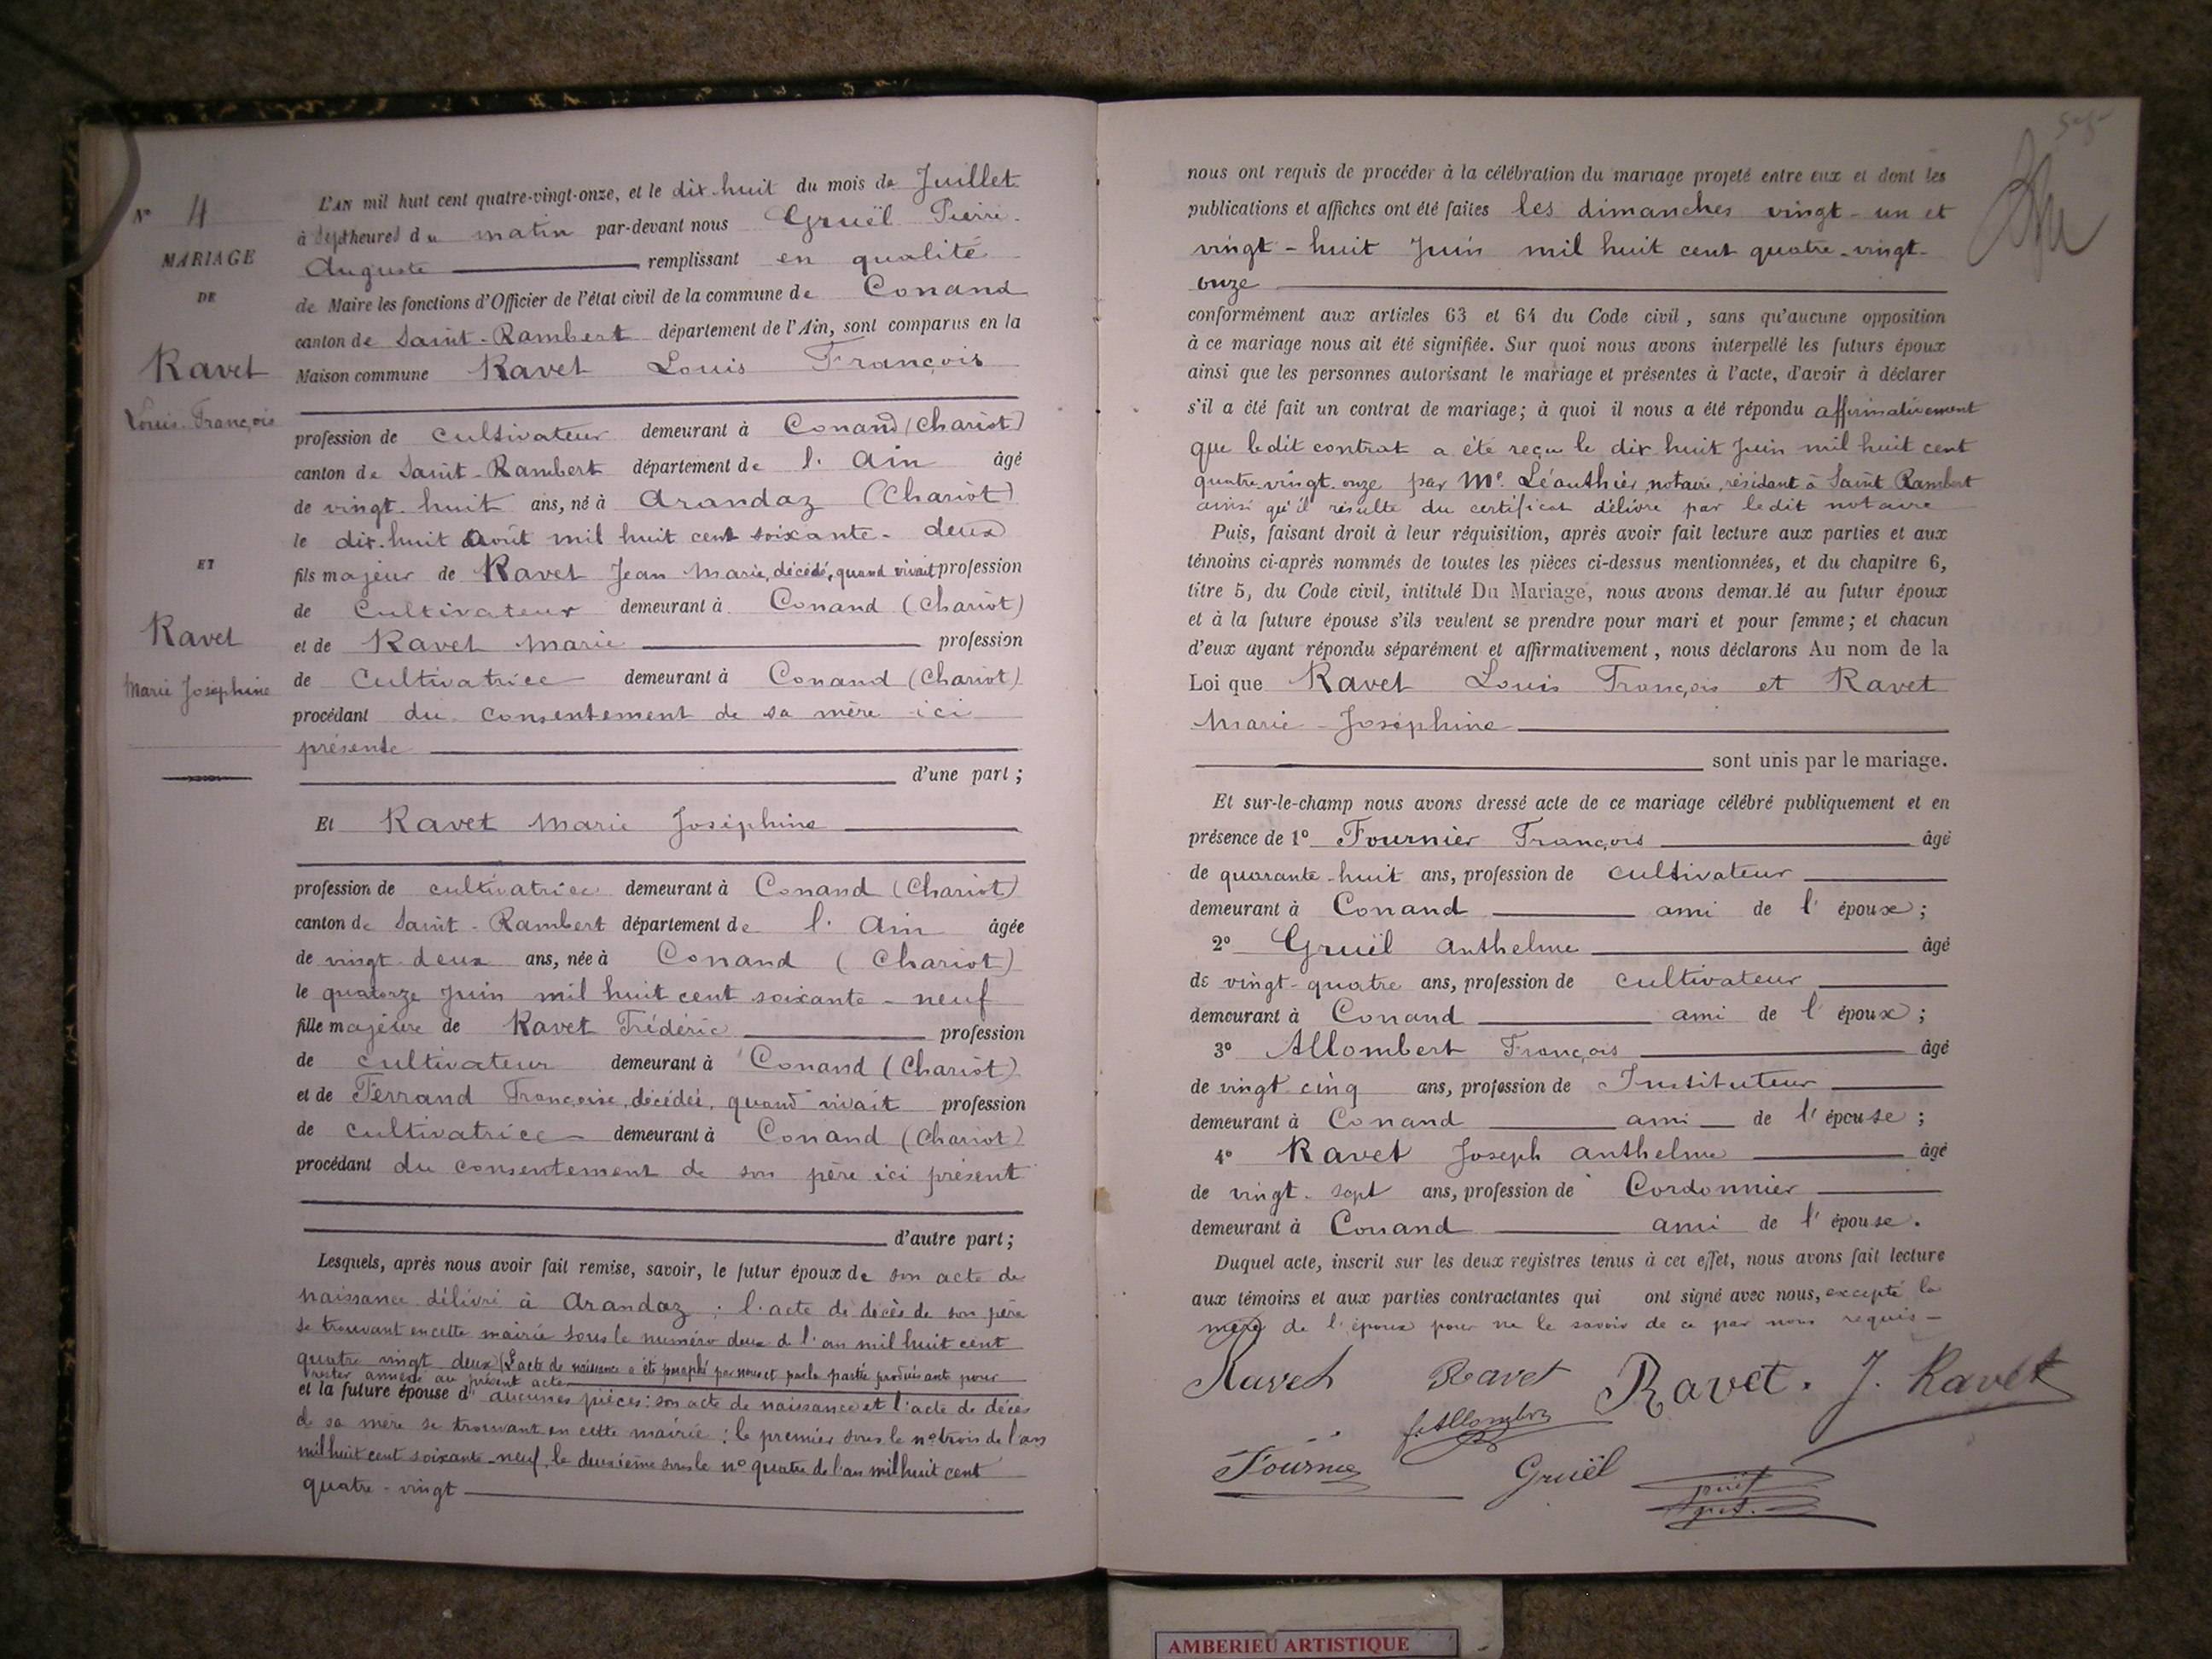 N° 4
MARIAGE
DE
Ravet
Louis François
ET
Ravet
Marie Joséphine
L'AN mil huit cent quatre-vingt-onze, et le dix-huit du mois de Juillet
à sept heures du matin par-devant nous Gruël Pierre
Auguste remplissant en qualité
de Maire les fonctions d'Officier de l'état civil de la commune de Conand
canton de Saint-Rambert département de l'Ain, sont comparus en la
Maison commune Ravet Louis François
profession de cultivateur demeurant à Conand (Chariot)
canton de Saint-Rambert département de l'Ain âgé
de vingt-huit ans, né à Arandaz (Chariot)
le dix-huit Août mil huit cent soixante-deux
fils majeur de Ravet Jean Marie, décédé, quand vivait profession
de Cultivateur demeurant à Conand (Chariot)
et de Ravet Marie profession
de Cultivatrice demeurant à Conand (Chariot)
procédant du consentement de sa mère ici
présente
d'une part;
Et Ravet Marie Joséphine
profession de cultivatrice demeurant à Conand (Chariot)
canton de Saint-Rambert département de l'Ain âgée
de vingt-deux ans, née à Conand (Chariot)
le quatorze Juin mil huit cent soixante-neuf
fille majeure de Ravet Frédéric profession
de cultivateur demeurant à Conand (Chariot)
et de Ferrand Françoise, décédée, quand vivait profession
de cultivatrice demeurant à Conand (Chariot)
procédant du consentement de son père ici présent
d'autre part;
Lesquels, après nous avoir fait remise, savoir, le futur époux de son acte de
naissance délivré à Arandaz; l'acte de décès de son père
se trouvant en cette mairie sous le numéro deux de l'an mil huit cent
quatre vingt deux (L'acte de naissance a été paraphé par nous et par la partie produisante pour
rester annexé au présent acte
et la future épouse d'aucunes pièces: son acte de naissance et l'acte de décès
de sa mère se trouvant en cette mairie: le premier sous le n° trois de l'an
mil huit cent soixante-neuf, le deuxième sous le n° quatre de l'an mil huit cent
quatre-vingt
nous ont requis de procéder à la célébration du mariage projeté entre eux et dont les
publications et affiches ont été faites les dimanches vingt-un et
vingt-huit Juin mil huit cent quatre-vingt-
onze
conformément aux articles 63 et 64 du Code civil, sans qu'aucune opposition
à ce mariage nous ait été signifiée. Sur quoi nous avons interpellé les futurs époux
ainsi que les personnes autorisant le mariage et présentes à l'acte, d'avoir à déclarer
s'il a été fait un contrat de mariage; à quoi il nous a été répondu affirmativement
que ledit contrat a été reçu le dix huit Juin mil huit cent
quatre-vingt-onze par Me. Léauthier, notaire, résidant à Saint Rambert
ainsi qu'il résulte du certificat délivré par ledit notaire
Puis, faisant droit à leur réquisition, après avoir fait lecture aux parties et aux
témoins ci-après nommés de toutes les pièces ci-dessus mentionnées, et du chapitre 6,
titre 5, du Code civil, intitulé Du Mariage, nous avons demandé au futur époux
et à la future épouse s'ils veulent se prendre pour mari et pour femme; et chacun
d'eux ayant répondu séparément et affirmativement, nous déclarons Au nom de la
Loi que Ravet Louis François et Ravet
Marie-Joséphine
sont unis par le mariage.
Et sur-le-champ nous avons dressé acte de ce mariage célébré publiquement et en
présence de 1° Fournier François âgé
de quarante-huit ans, profession de cultivateur
demeurant à Conand ami de l'époux;
2° Gruël Anthelme âgé
de vingt-quatre ans, profession de cultivateur
demeurant à Conand ami de l'époux;
3° Allombert François âgé
de vingt cinq ans, profession de Instituteur
demeurant à Conand ami de l'épouse;
4° Ravet Joseph Anthelme âgé
de vingt-sept ans, profession de Cordonnier
demeurant à Conand ami de l'épouse.
Duquel acte, inscrit sur les deux registres tenus à cet effet, nous avons fait lecture
aux témoins et aux parties contractantes qui ont signé avec nous, excepté la
mère de l'époux pour ne le savoir de ce par nous requis
Ravet Ravet Ravet. J. Ravet
f. Allombert
Fournier Gruël
AMBERIEU ARTISTIQUE